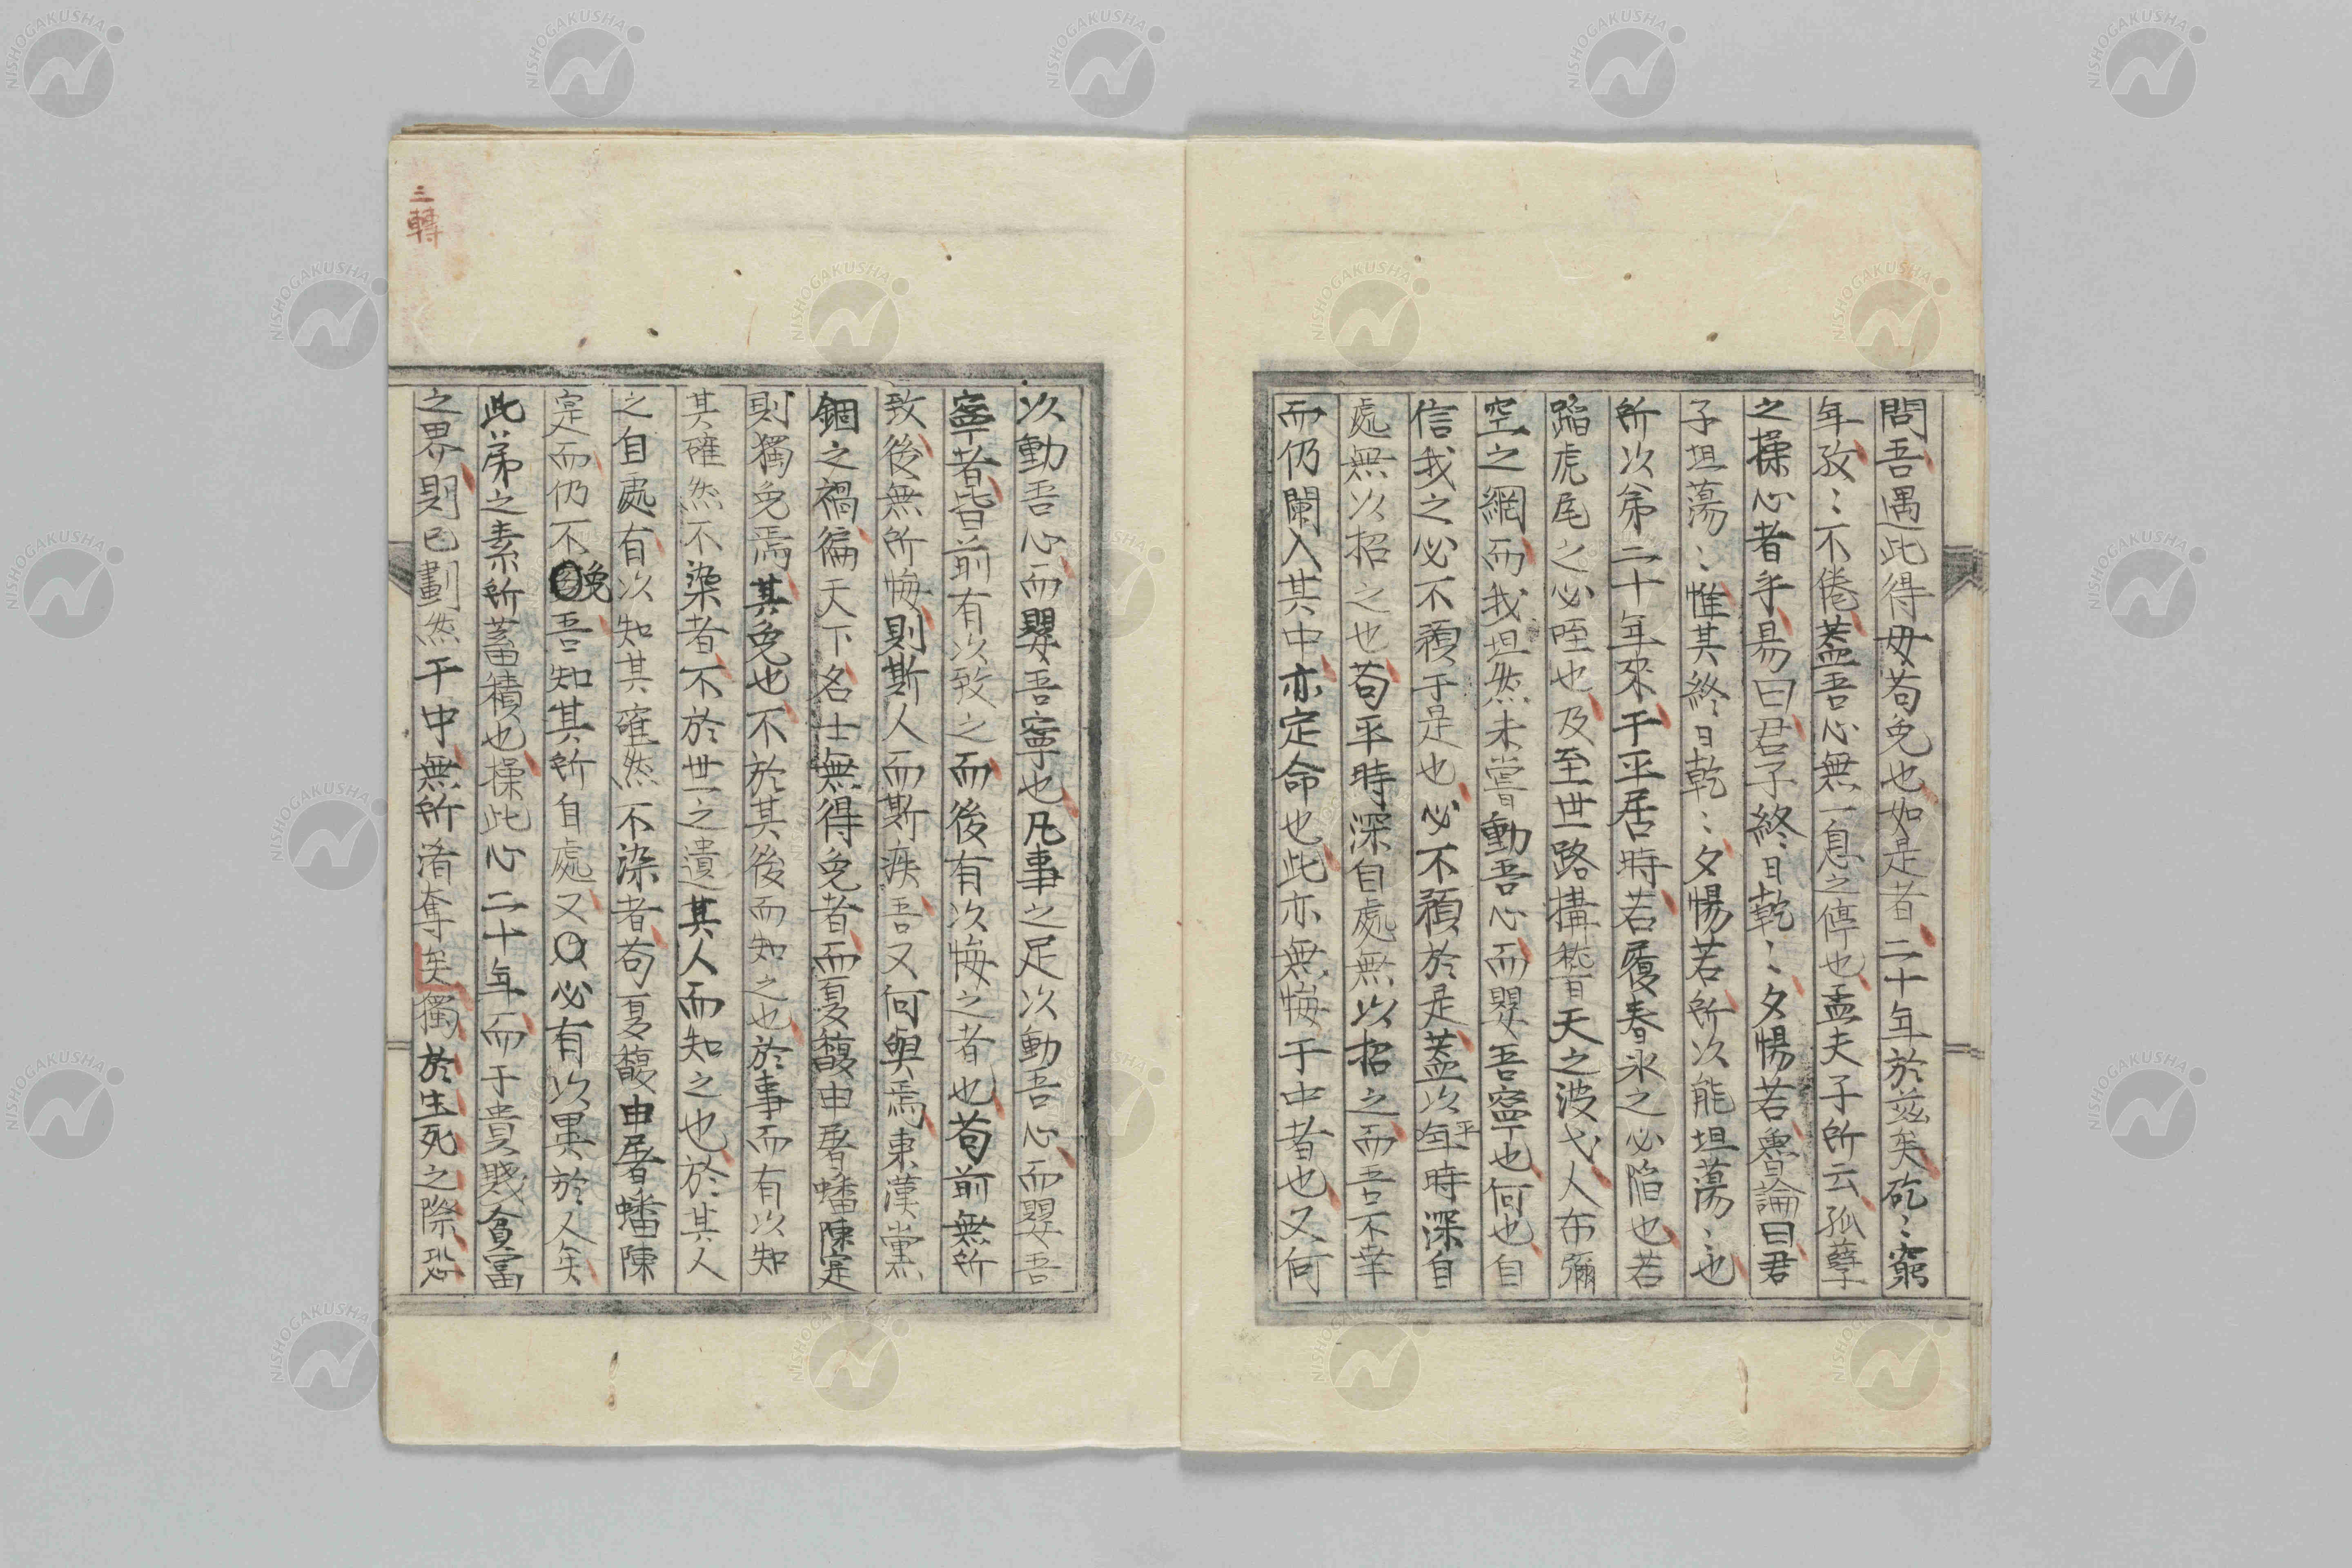 問吾遇此得毋苟免也如是者二十年於玆矣矻〻窮
年孜〻不倦葢吾心無一息之停也孟夫子所云孤孽
之操心者乎易曰君子終日乾〻夕惕若魯論曰君
子坦蕩〻惟其終日乾〻夕惕若所以能坦蕩〻也
所以弟二十年來于平居時若履春氷之必陷也若
蹈虎尾之必咥也及至世路搆嵆天之波弋人布彌
空之網而我坦然未嘗動吾心而嬰吾寧也何也自
信我之必不預于是也必不預於是葢以平時深自
處無以招之也苟平時深自處無以招之而吾不幸
而仍闌入其中亦定命也此亦無悔于中者也又何
以動吾心而嬰吾寧也凡事之足以動吾心而嬰吾
寧者皆前有以致之而後有以悔之者也苟前無所
致後無所悔則斯人而斯疾吾又何與焉東漢黨
錮之禍徧天下名士無得免者而夏馥申屠蟠陳寔
則獨免焉其免也不於其後而知之也於事而有以知
其確然不染者不於世之遺其人而知之也於其人
之自處有以知其確然不染者苟夏馥申屠蟠陳
寔而仍不免吾知其所自處又必有以異於人矣
此弟之素所蓄積也操此心二十年而于貴賤貧富
之界則已劃然于中無所淆奪矣獨於生死之際恐
三轉
NISHOGAKUSHA